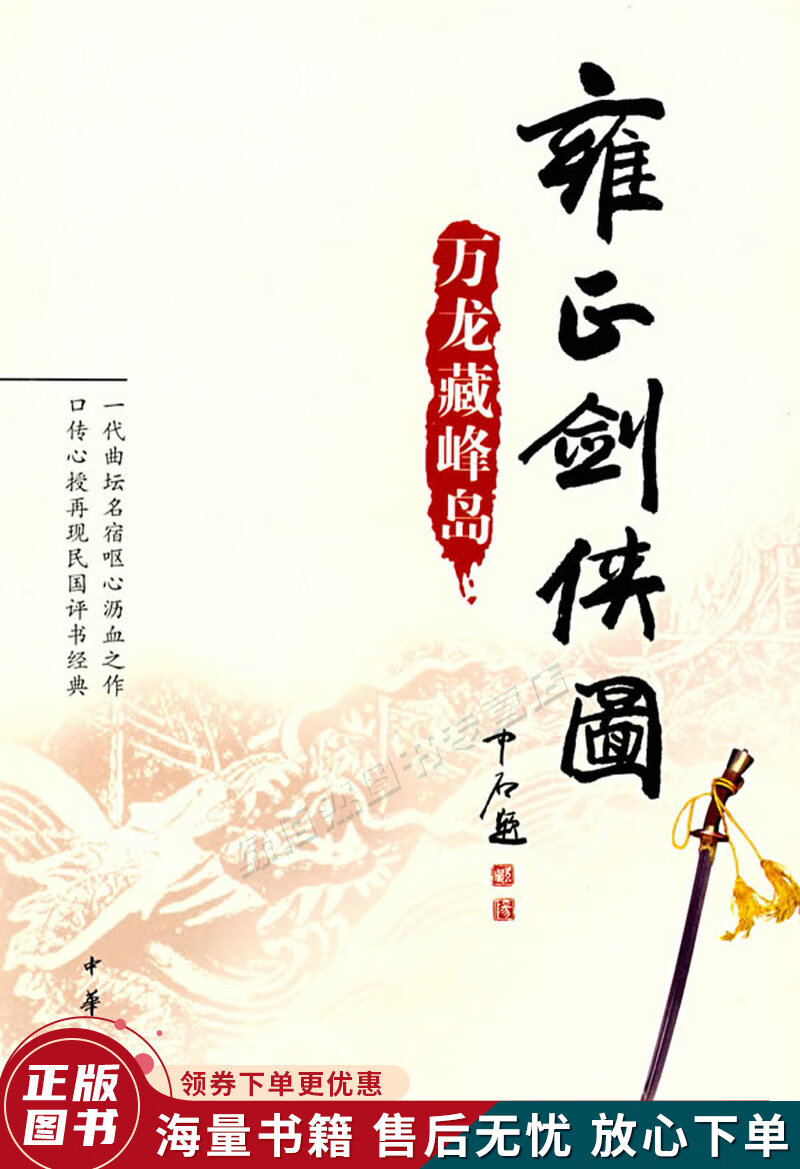 雍正剑侠圖
万龙藏峰岛
一代曲坛名宿呕心沥血之作
口传心授再现民国评书经典
中石题
中華
正版
图书
领券下单更优惠
海量书籍 售后无忧 放心下单